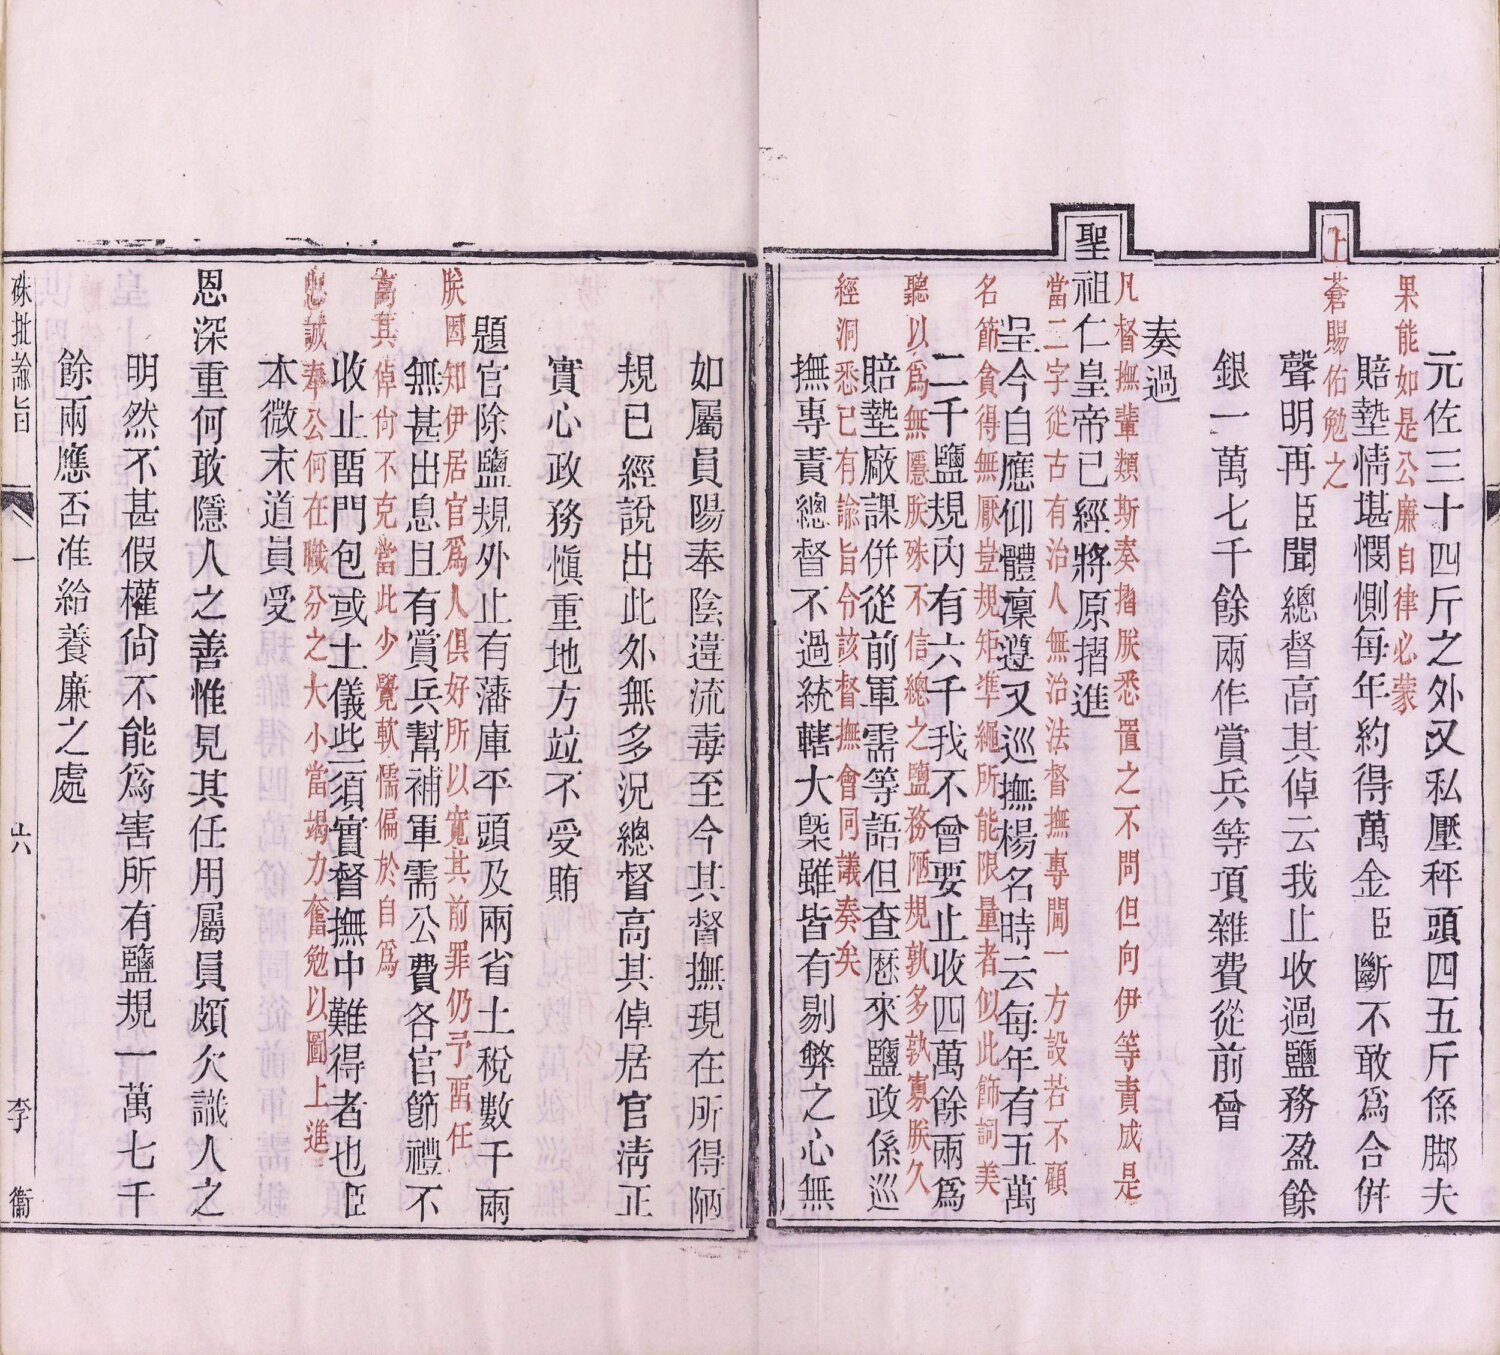 元佐三十四斤之外又私壓秤頭四五斤係脚夫
果能如是公廉自律必蒙
賠墊情堪憫惻每年約得萬金臣斷不敢爲合併
上蒼賜佑勉之
聲明再臣聞總督高其倬云我止收過鹽務盈餘
銀一萬七千餘兩作賞兵等項雜費從前曾
奏過
凡督撫輩類斯奏摺朕悉置之不問但向伊等責成是
聖祖仁皇帝已經將原摺進
當二字從古有治人無治法督撫專閫一方設若不顧
呈今自應仰體凜遵又巡撫楊名時云每年有五萬
名節貪得無厭豈規矩準繩所能限量者似此飾詞美
二千鹽規內有六千我不曾要止收四萬餘兩爲
聽以爲無隱朕殊不信總之鹽務陋規孰多孰寡朕久
賠墊廠課併從前軍需等語但查歷來鹽政係巡
經洞悉已有諭旨令該督撫會同議奏矣
撫專責總督不過統轄大槩雖皆有剔弊之心無
如屬員陽奉陰違流毒至今其督撫現在所得陋
規已經說出此外無多況總督高其倬居官淸正
實心政務愼重地方竝不受賄
題官除鹽規外止有藩庫平頭及兩省土稅數千兩
朕因知伊居官爲人俱好所以寬其前罪仍予畱任
無甚出息且有賞兵幫補軍需公費各官節禮不
高其倬尙不克當此少覺軟懦偏於自爲
收止畱門包或土儀些須實督撫中難得者也臣
忠誠奉公何在職分之大小當竭力奮勉以圖上進
本微末道員受
恩深重何敢隱人之善惟見其任用屬員頗欠識人之
明然不甚假權尙不能爲害所有鹽規一萬七千
餘兩應否准給養廉之處
硃批諭旨 一 六 李衞